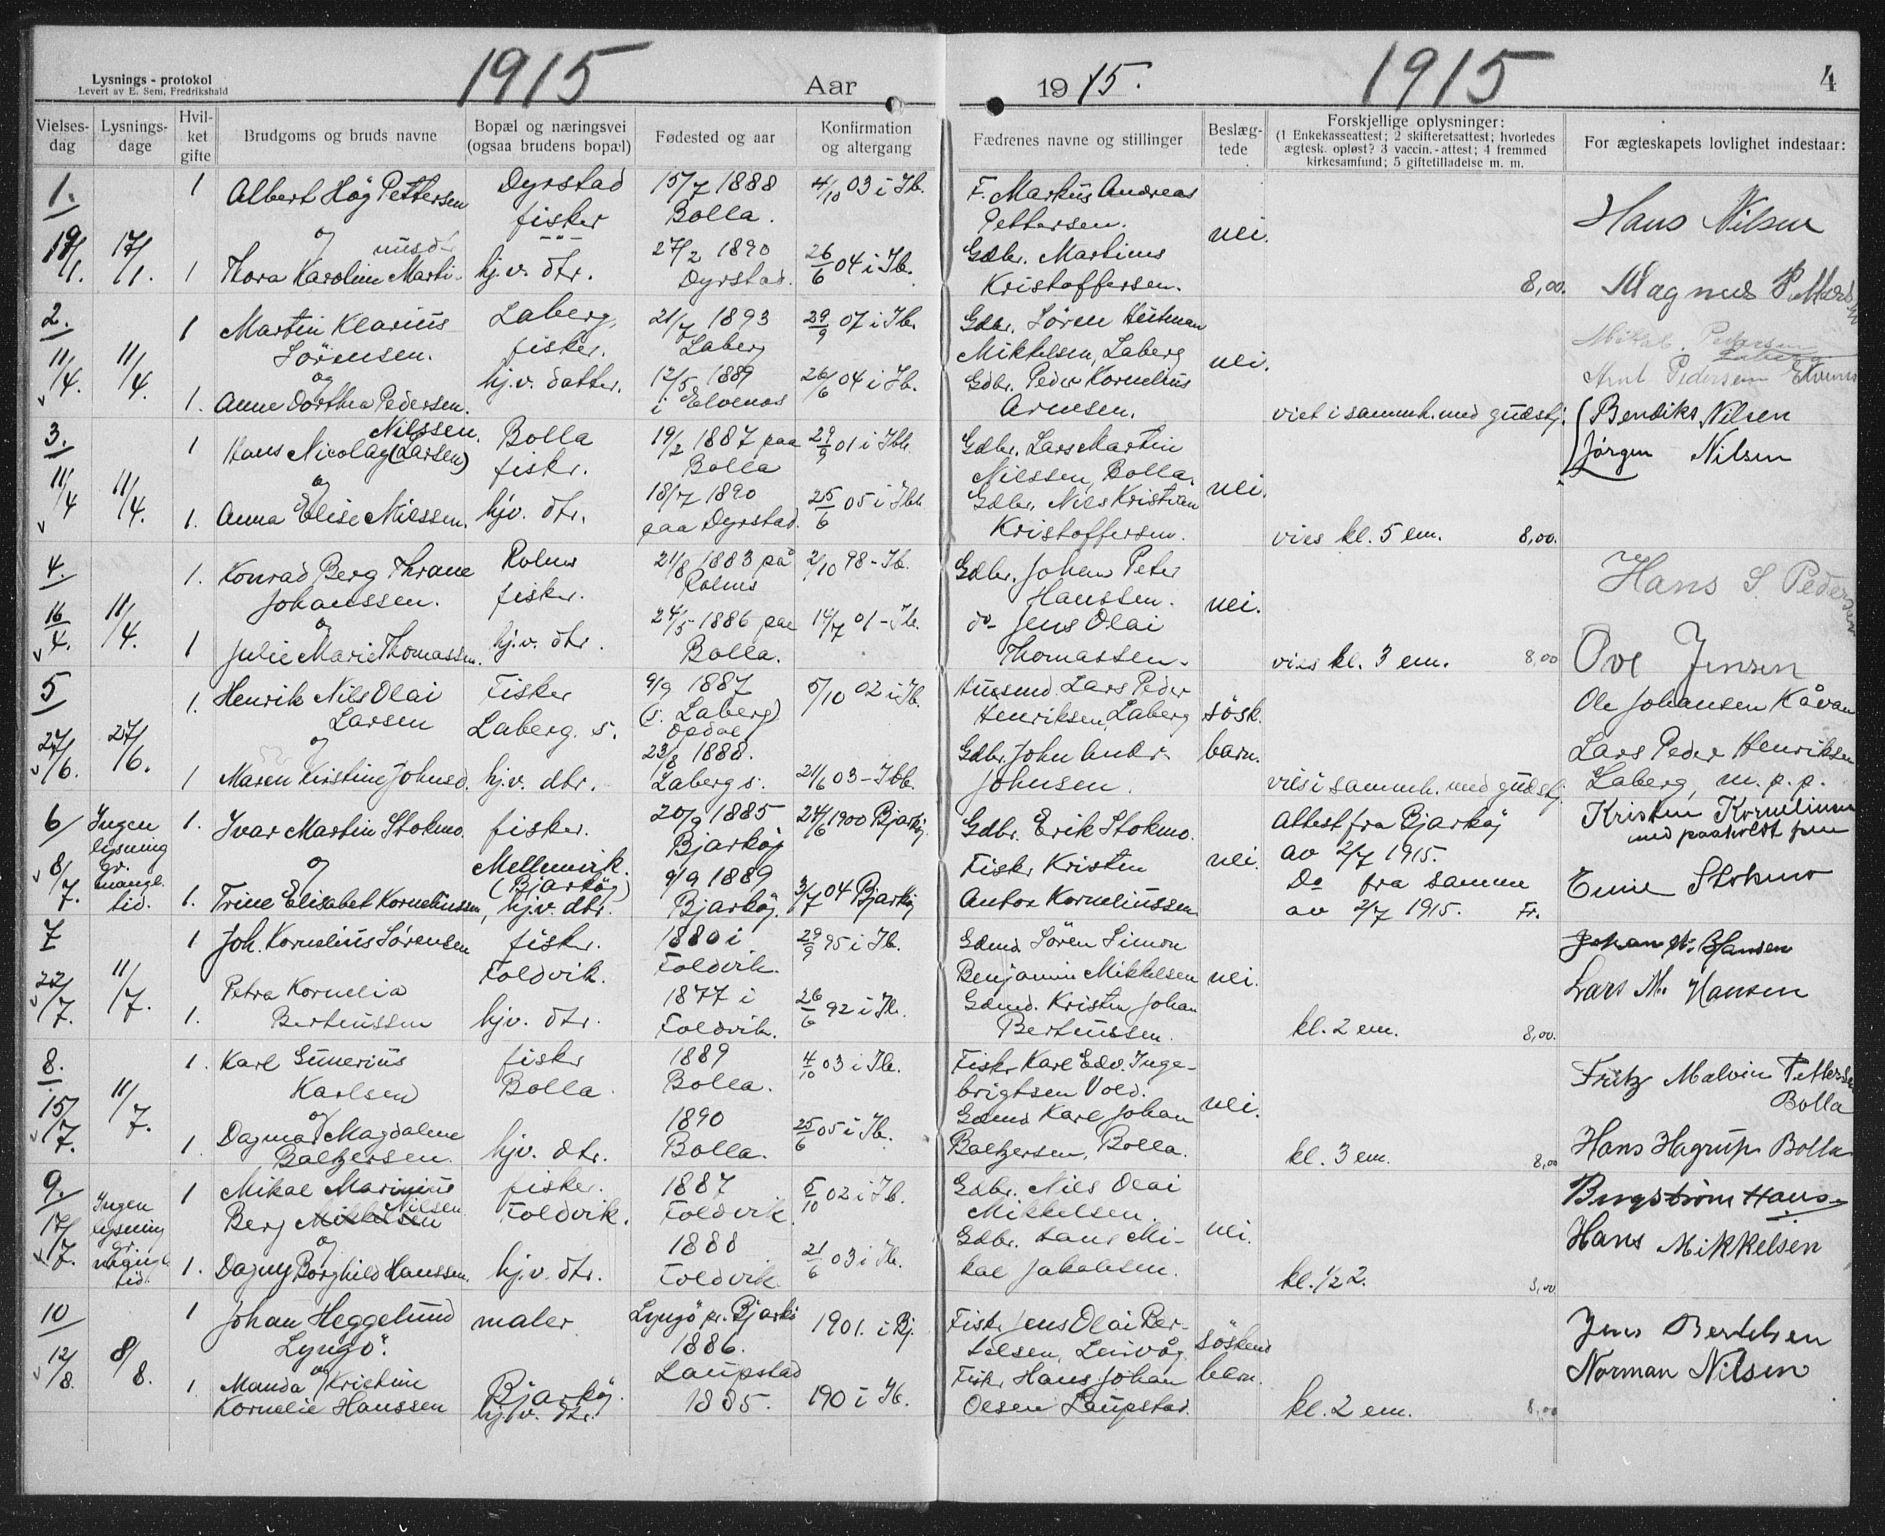 1915
Lysnings - protokol
Levert av E. Sem, Fredrikshald
Aar
Vielses-dag
Lysnings-dage
Hvil-ket gifte
Brudgoms og bruds navne
Bopæl og næringsvei (ogsaa brudens bopæl)
Fødested og aar
Konfirmation og altergang
1915.
1915
4
Fædrenes navne og stillinger
Beslæg-tede
Forskjellige oplysninger:
(1 Enkekasseattest; 2 skifteretsattest; hvorledes
ægtesk. opløst? 3 vaccin.-attest; 4 fremmed
kirkesamfund; 5 giftetilladelse m. m.
For ægteskapets lovlighet indestaar:
1. 1 Albert Høg Pettersen Dyrstad 15/7 1888 4/10 03 i Ib. F. Markus Andreas
fisker Bolla. Pettersen. nei. Hans Nilsen
og
19/1. 17/1. 1 Thora Karoline Marti-nusdr hj.v. dtr. 27/2 1890 26/6 04 i Ib. Gdbr. Martinus
Dyrstad. Kristoffersen. 8,00. Magnus
2. 1 Martin Klarius Laberg, 21/7 1893 29/9 07 i Ib. Gdbr. Sören
Sörensen. fisker. Laberg Mikkelsen, Laberg nei. Mikal Pedersen
og Laberg
11/4. 11/4. hj.v. datter. 12/5 1889 26/6 04 i Ib. Gdbr. Peder Kornelius Arnt Pedersen
1. Anne Dorthea Pedersen. i Elvenes Arnesen. viet i sammh. med gudstj.
3. 1 Hans Nicolay (Larsen) Nilssen. Bolla 19/2 1887 paa 29/9 01 i Ibb. Gdbr. Lars Martin Bendiks Nilsen
fisker. Bolla Nilssen, Bolla. nei. Jørgen Nilsen
og
11/4 11/4. 1. Anna Elise Nilssen. hjv. dtr. 18/7 1890 25/6 05 i Ibb. Gdbr. Nils Kristian
paa Dyrstad. Kristoffersen. vies kl. 5 em. 8,00.
4. 1. Konrad Berg Thrane Rolnes 21/8 1883 på 2/10 98 - Ib. Gdbr. Johan Peter
Johanssen. fisker. Rolnes Hanssen. nei. Hans S. Pedersen
og
16/4. 11/4. 1 Julie Marie Thomassen. hj.v. dtr. 24/5 1886 paa 14/7 01 - Ib. do- Jens Olai
Bolla. Thomassen. vies kl. 3 em. 8,00 Ove Jensen
5 1. Henrik Nils Olai Fisker 9/9 1887 5/10 02 i Ib. Husmd. Lars Peder Ole Johansen
Larsen Laberg s. (s. Laberg) Henriksen, Laberg søsk.
og Opdal
27/6. 27/6. 23/8 1888. Gdbr. John Andr. barn. Lars Peder Henriksen
1 Maren Kirstine Johnsd. hj.v. dtr. Laberg s. 21/6 03 - Ibb. Johnsen. vies i sammh. med gudstj. Laberg, m. p. p.
6 Ingen lysning gr. mangl. tid. 1. Ivar Martin Stokmo. fisker. 20/9 1885 24/6 1900 Bjarkøy Gdbr. Erik Stokmo. Attest fra Bjarkøj Kristen Kornelius
Bjarkøj av 2/7 1915. med paaholdt pen
og Mellemvik. nei.
8/7. (Bjarkøj) 9/9 1889 3/7 04 Bjarkøj Fisker Kristen Do fra samme
1. Trine Elisabet Korneliussen, hj.v. dtr. Bjarkøj. Anton Korneliussen. av 2/7 1915. Fr. Stokmo
7 1 Joh. Kornelius Sørensen fisker. 1880 i 29/9 95 i Ib. Gdmd Sören Simon
Foldvik. Foldvik. Benjamin Mikkelsen nei.
22/7. 11/7. Petra Kornelia 1877 i 26/6 92 i Ib. Gdmd. Kristen Johan Lars M. Hansen
1. Berteussen hjv. dtr. Foldvik. Berteussen. kl. 2 em. 8,00.
8. 1. Karl Gunerius fisker 1889 4/10 03 i Ib. Fisker Karl Edv. Inge- Fritz Malvin Pettersen
Karlsen Bolla. Bolla. brigtsen Vold. nei. Bolla
og
15/7. 11/7. 1. Dagmar Magdalene 1890 25/6 05 i Ib. Gdmd Karl Johan
Baltzersen. hjv. dtr. Bolla. Baltzersen, Bolla. kl. 3 em. 8,00 Hans Hagrup Bolla
9. Ingen lysning gr. mangl. tid. 1 Mikal Marinius fisker. 1887 5/10 02 i Ib. Gdbr. Nils Olai Bergstrøm Hans-
Berg Mikkelsen Nilsen Foldvik. Foldvik. Mikkelsen. nei. Hans Mikkelsen
og
17/7. 1. Dagny Borghild Hanssen. hj.v. dtr. 1888 21/6 03 i Ib. Gdbr. Hans Mi-
Foldvik. kal Jakobsen. kl. 1/2 2. 8,00
10 1 Johan Heggelund maler Lyngö pr. Bjarkö 1901. i Bj. Fisker Jens Olai Ber-
Lyngö. 1886. telsen, Leirvåg. söskend Jens Bertelsen
og
12/8. 8/8. 1. Manda Kristine Bjarköj. Laupstad Fisker Hans Johan barn. Norman Nilsen
Kornelie Hanssen hj.v. dtr. 1885. 190 i Ib. Olsen Laupstad. kl. 2 em. 8,00